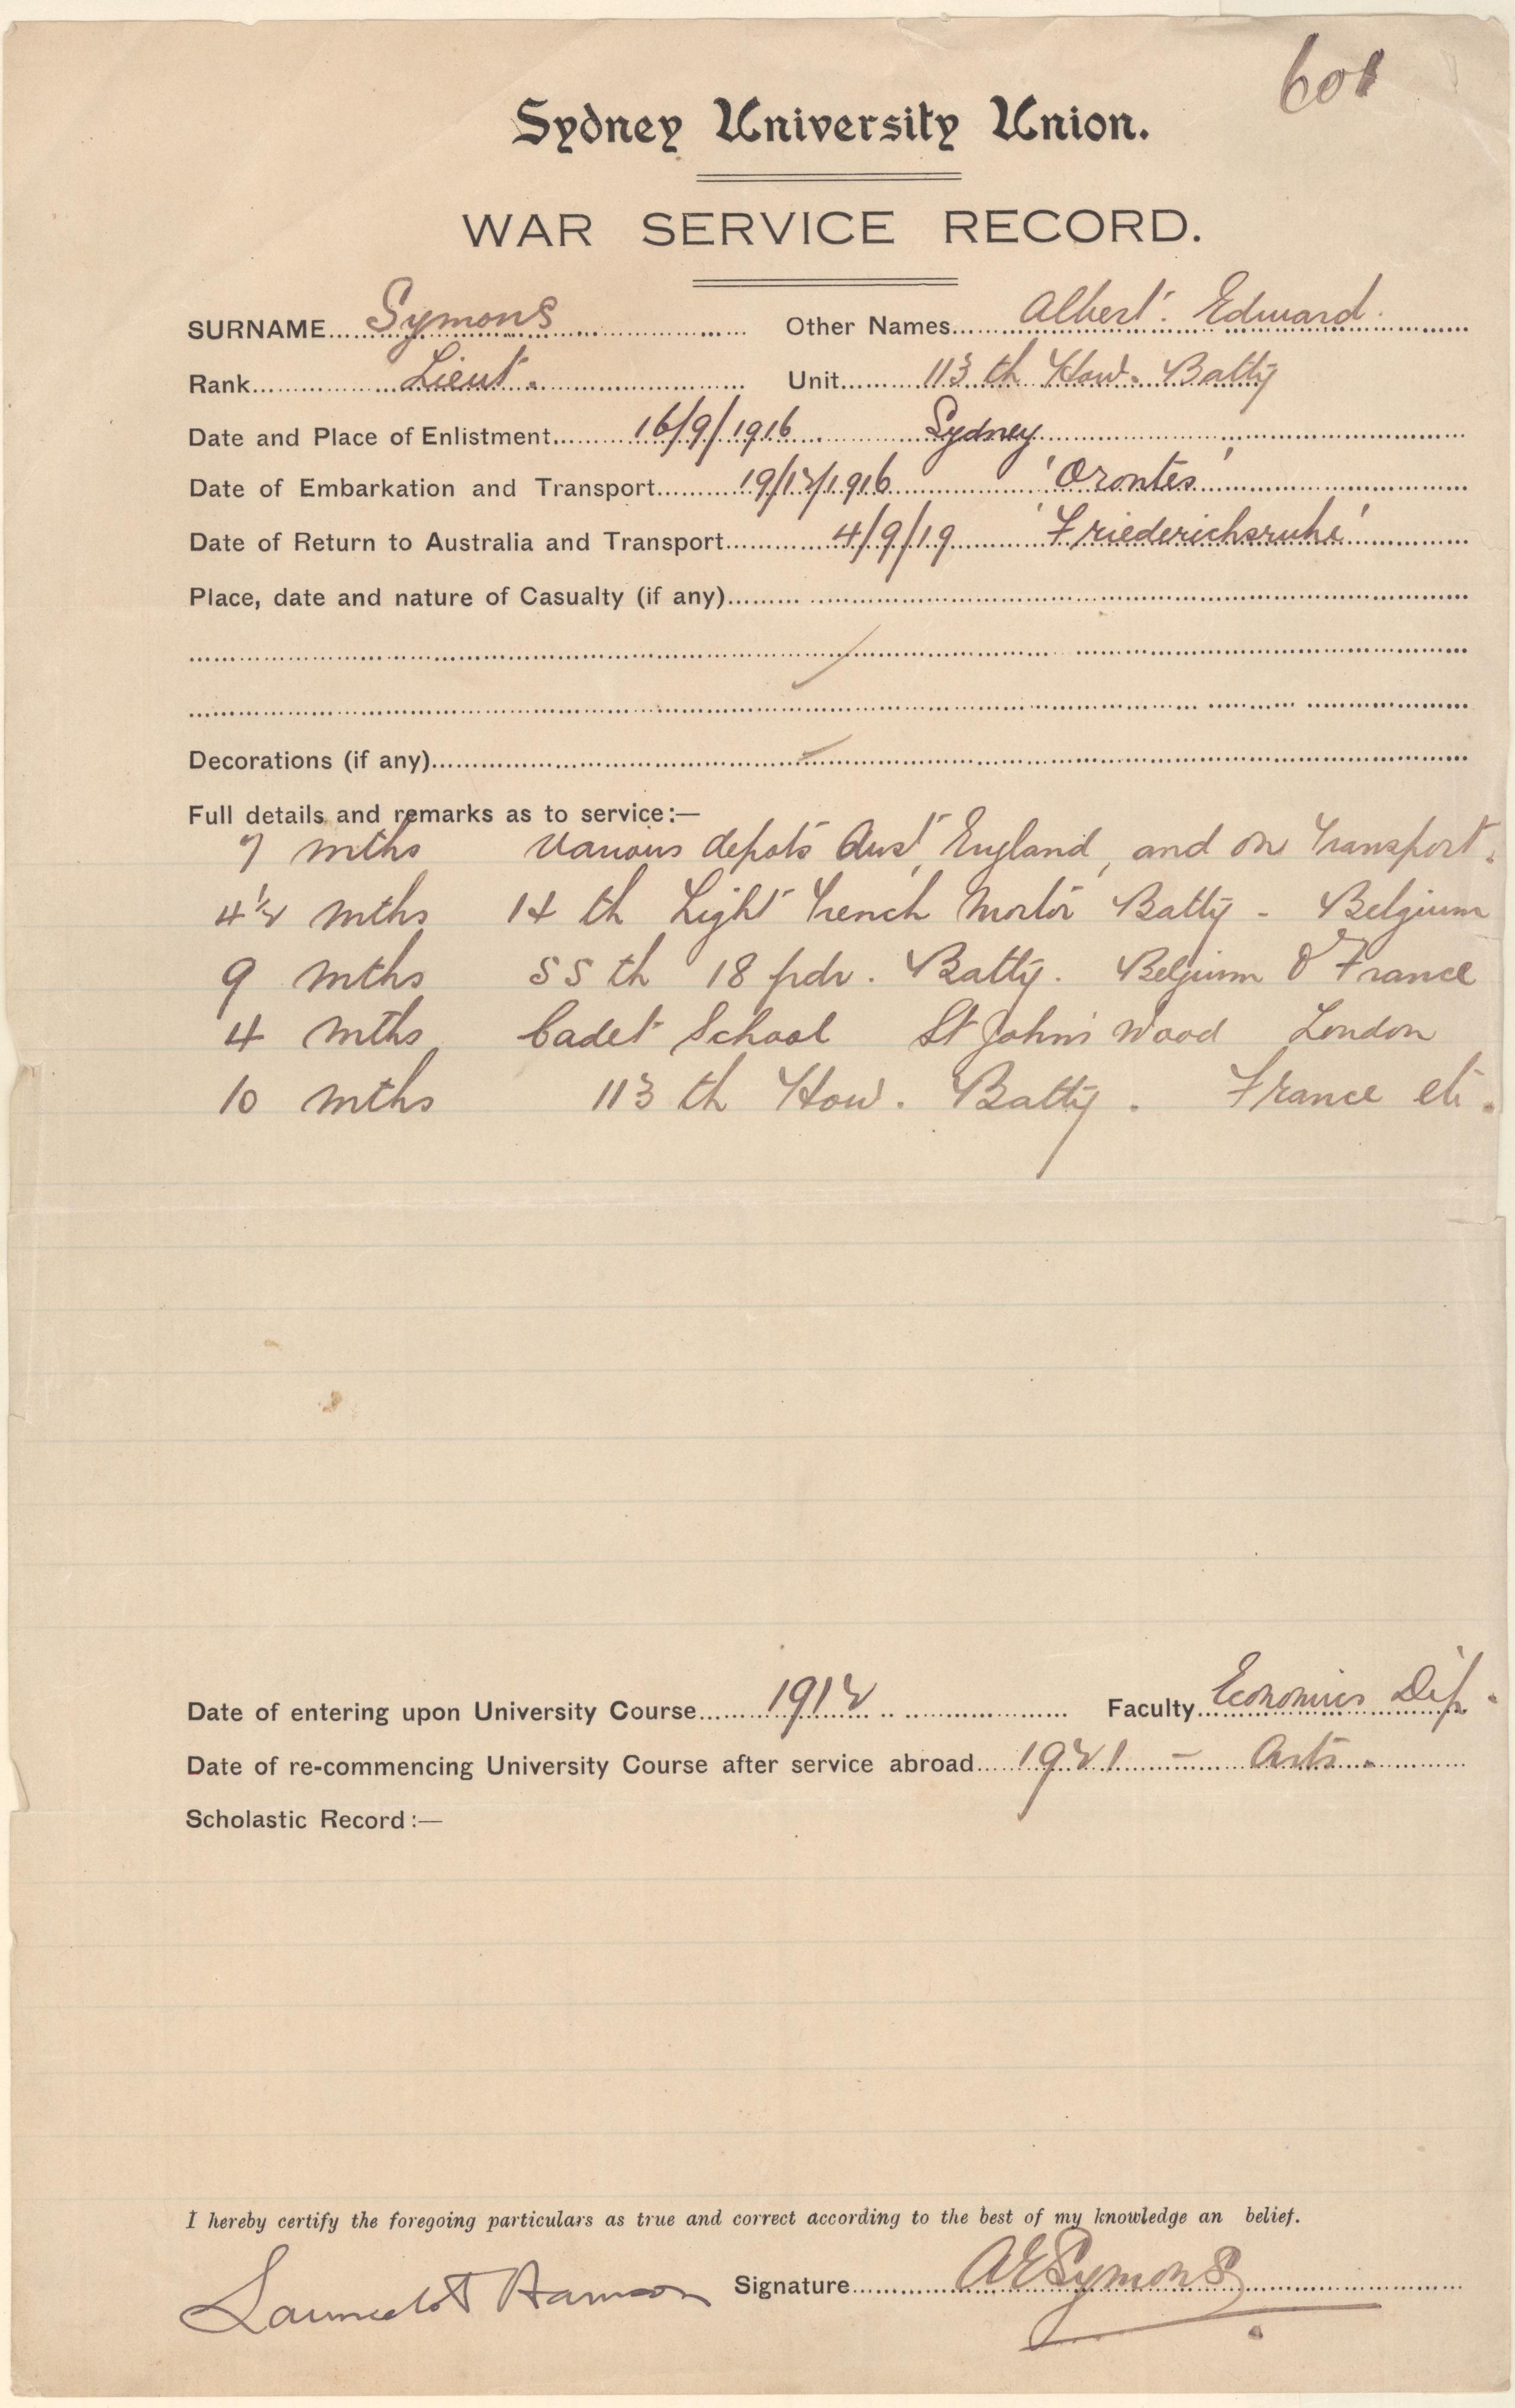 601
Sydney University Union.
WAR SERVICE RECORD.
SURNAME Symons Other Names Albert Edward.
Rank Lieut. Unit 113th How. Batty
Date and Place of Enlistment 16/9/1916 Sydney
Date of Embarkation and Transport 19/12/1916 'Orontes'
Date of Return to Australia and Transport 4/9/19 'Friederichsruhe'
Place, date and nature of Casualty (if any)
Decorations (if any)
Full details and remarks as to service:—
7 mths Various depots Aust, England, and on Transport.
4½ mths 14th Light Trench Mortor Batty - Belgium
9 mths 55th 18 pdr. Batty. Belgium & France
4 mths Cadet School St John's Wood London
10 mths 113th How. Batty. France etc.
Date of entering upon University Course 1912 Faculty Economics Dip.
Date of re-commencing University Course after service abroad 1921 - Arts.
Scholastic Record:—
I hereby certify the foregoing particulars as true and correct according to the best of my knowledge an belief.
Launcelot Harrison Signature AESymons